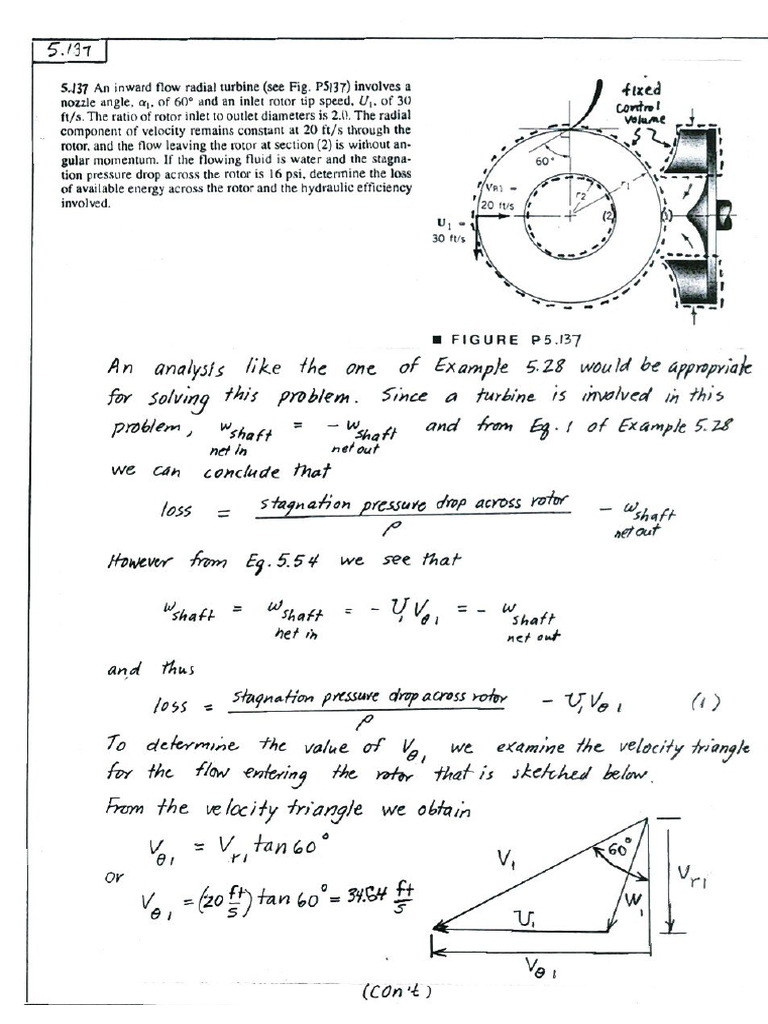 5.137
5.137 An inward flow radial turbine (see Fig. P5.137) involves a
nozzle angle, α₁, of 60° and an inlet rotor tip speed, U₁, of 30
ft/s. The ratio of rotor inlet to outlet diameters is 2.0. The radial
component of velocity remains constant at 20 ft/s through the
rotor, and the flow leaving the rotor at section (2) is without an-
gular momentum. If the flowing fluid is water and the stagna-
tion pressure drop across the rotor is 16 psi, determine the loss
of available energy across the rotor and the hydraulic efficiency
involved.
fixed
control
volume
60°
r₁
r₂
V_R1 =
20 ft/s
(2)
(1)
U₁ =
30 ft/s
■ FIGURE P5.137
An analysis like the one of Example 5.28 would be appropriate
for solving this problem. Since a turbine is involved in this
problem, w_shaft net in = -w_shaft net out and from Eq. 1 of Example 5.28
we can conclude that
loss = stagnation pressure drop across rotor / ρ - w_shaft net out
However from Eq. 5.54 we see that
w_shaft = w_shaft net in = - U₁V_θ1 = - w_shaft net out
and thus
loss = stagnation pressure drop across rotor / ρ - U₁V_θ1 (1)
To determine the value of V_θ1 we examine the velocity triangle
for the flow entering the rotor that is sketched below.
From the velocity triangle we obtain
V_θ1 = V_r1 tan 60°
or
V_θ1 = (20 ft/s) tan 60° = 34.64 ft/s
V₁
60°
V_r1
W₁
U₁
V_θ1
(con't)